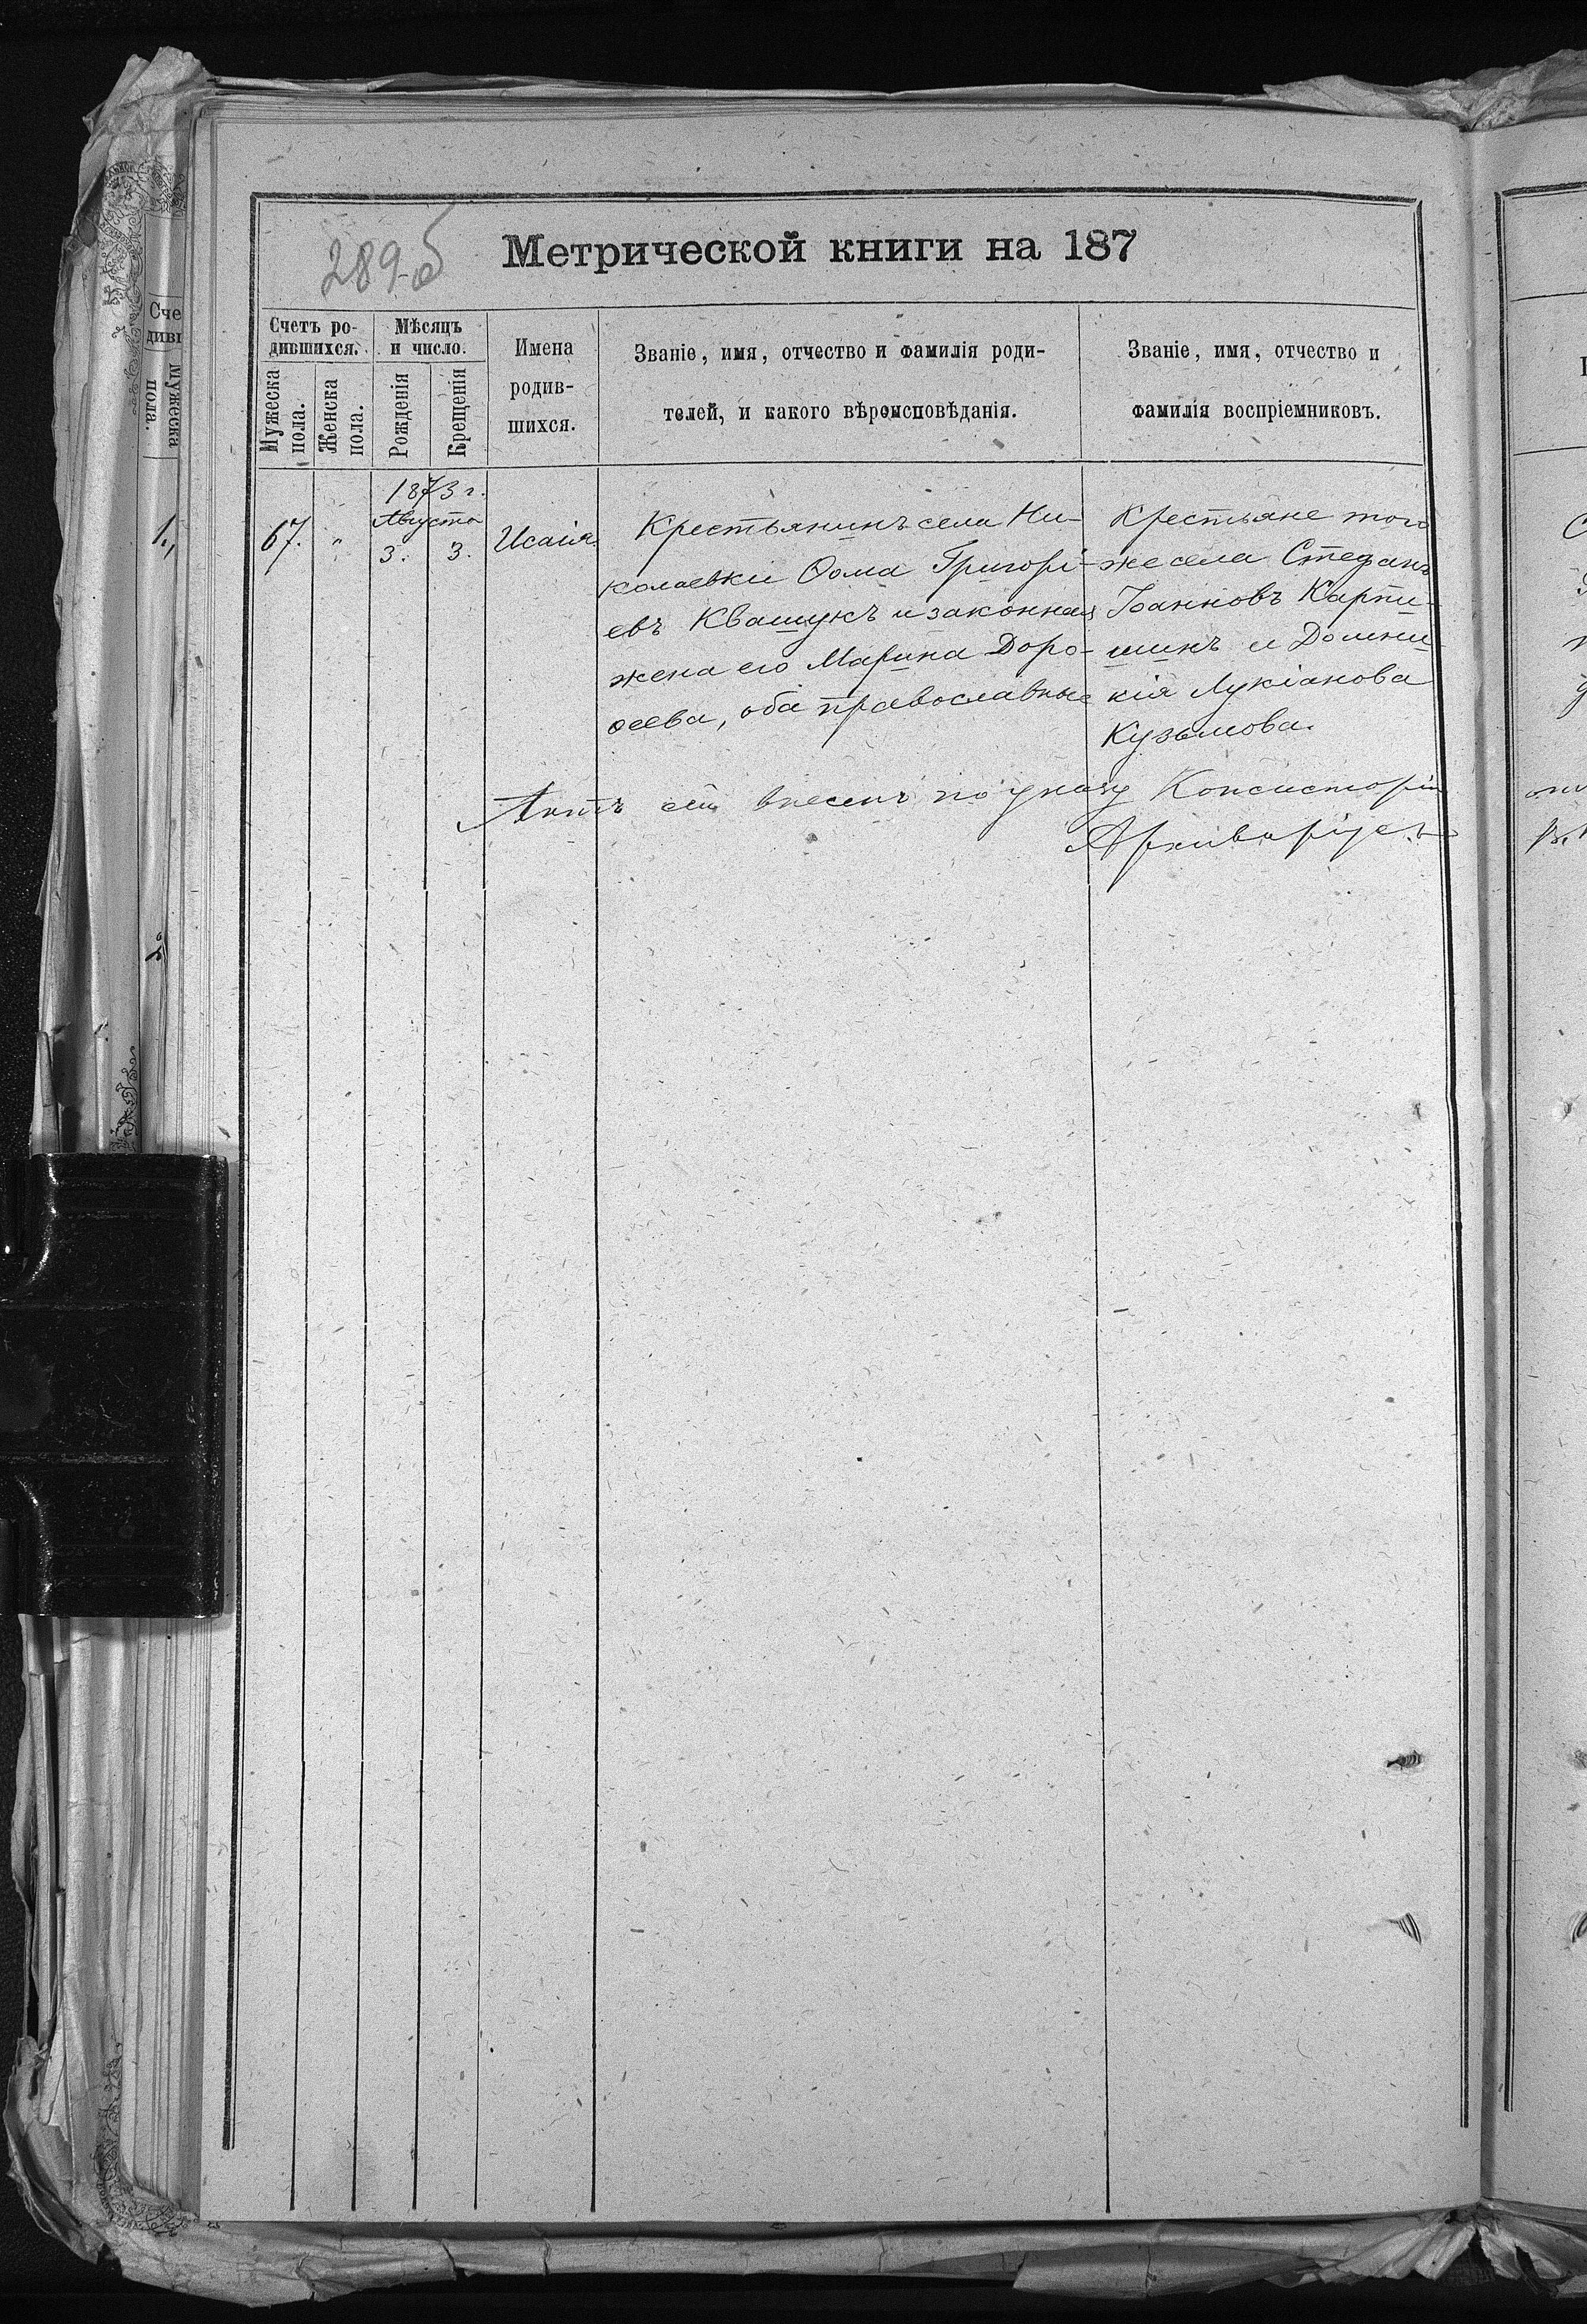 289 об
Метрической книги на 187
Счетъ ро-
дившихся.
Мѣсяцъ
и число.
Мужеска
пола.
Женска
пола.
Рожденія
Крещенія
Имена
родив-
шихся.
Званіе, имя, отчество и фамилія роди-
телей, и какого вѣроисповѣданія.
Званіе, имя, отчество и
фамилія воспріемниковъ.
1873 г.
Августа
67. " 3. 3. Исаія.
Крестьянинъ села Ни-
колаевки Ѳома Григорі-
евъ Квашукъ и законная
жена его Марина Доро-
ѳеева, оба православные
Крестьяне того
же села Стефанъ
Іоанновъ Карпи-
шинъ и Домни-
кія Лукіанова
Кузьмова.
Актъ сей внесенъ по указу Консисторіи
Архиваріусъ
Сче
дивш
Мужеска
пола.
1.,